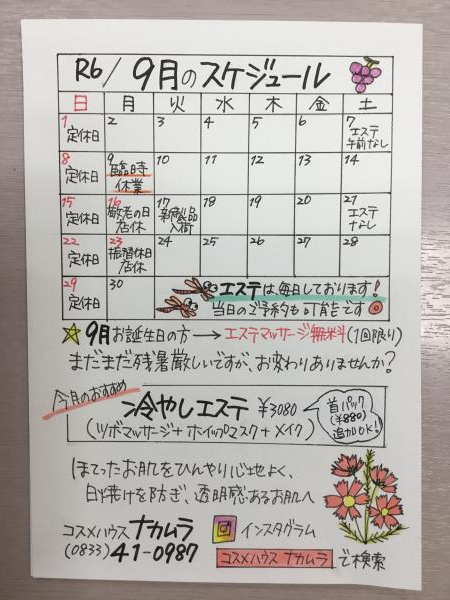 R6/9月のスケジュール
日 月 火 水 木 金 土
1 2 3 4 5 6 7
定休日 エステ
午前なし
8 9 10 11 12 13 14
定休日 臨時
休業
15 16 17 18 19 20 21
定休日 敬老の日 新製品 エステ
店休 入荷 なし
22 23 24 25 26 27 28
定休日 振替休日
店休
29 30
定休日
エステは毎日しております!
当日のご予約も可能です
9月お誕生日の方→エステマッサージ無料(1回限り)
まだまだ残暑厳しいですが、お変わりありませんか?
今月のおすすめ
冷やしエステ ¥3080
(ツボマッサージ+ホイップマスク+メイク)
首パック
(¥880)
追加OK!
ほてったお肌をひんやり心地よく、
日焼けを防ぎ、透明感あるお肌へ
コスメハウス ナカムラ インスタグラム
(0833)41-0987 コスメハウス ナカムラ で検索